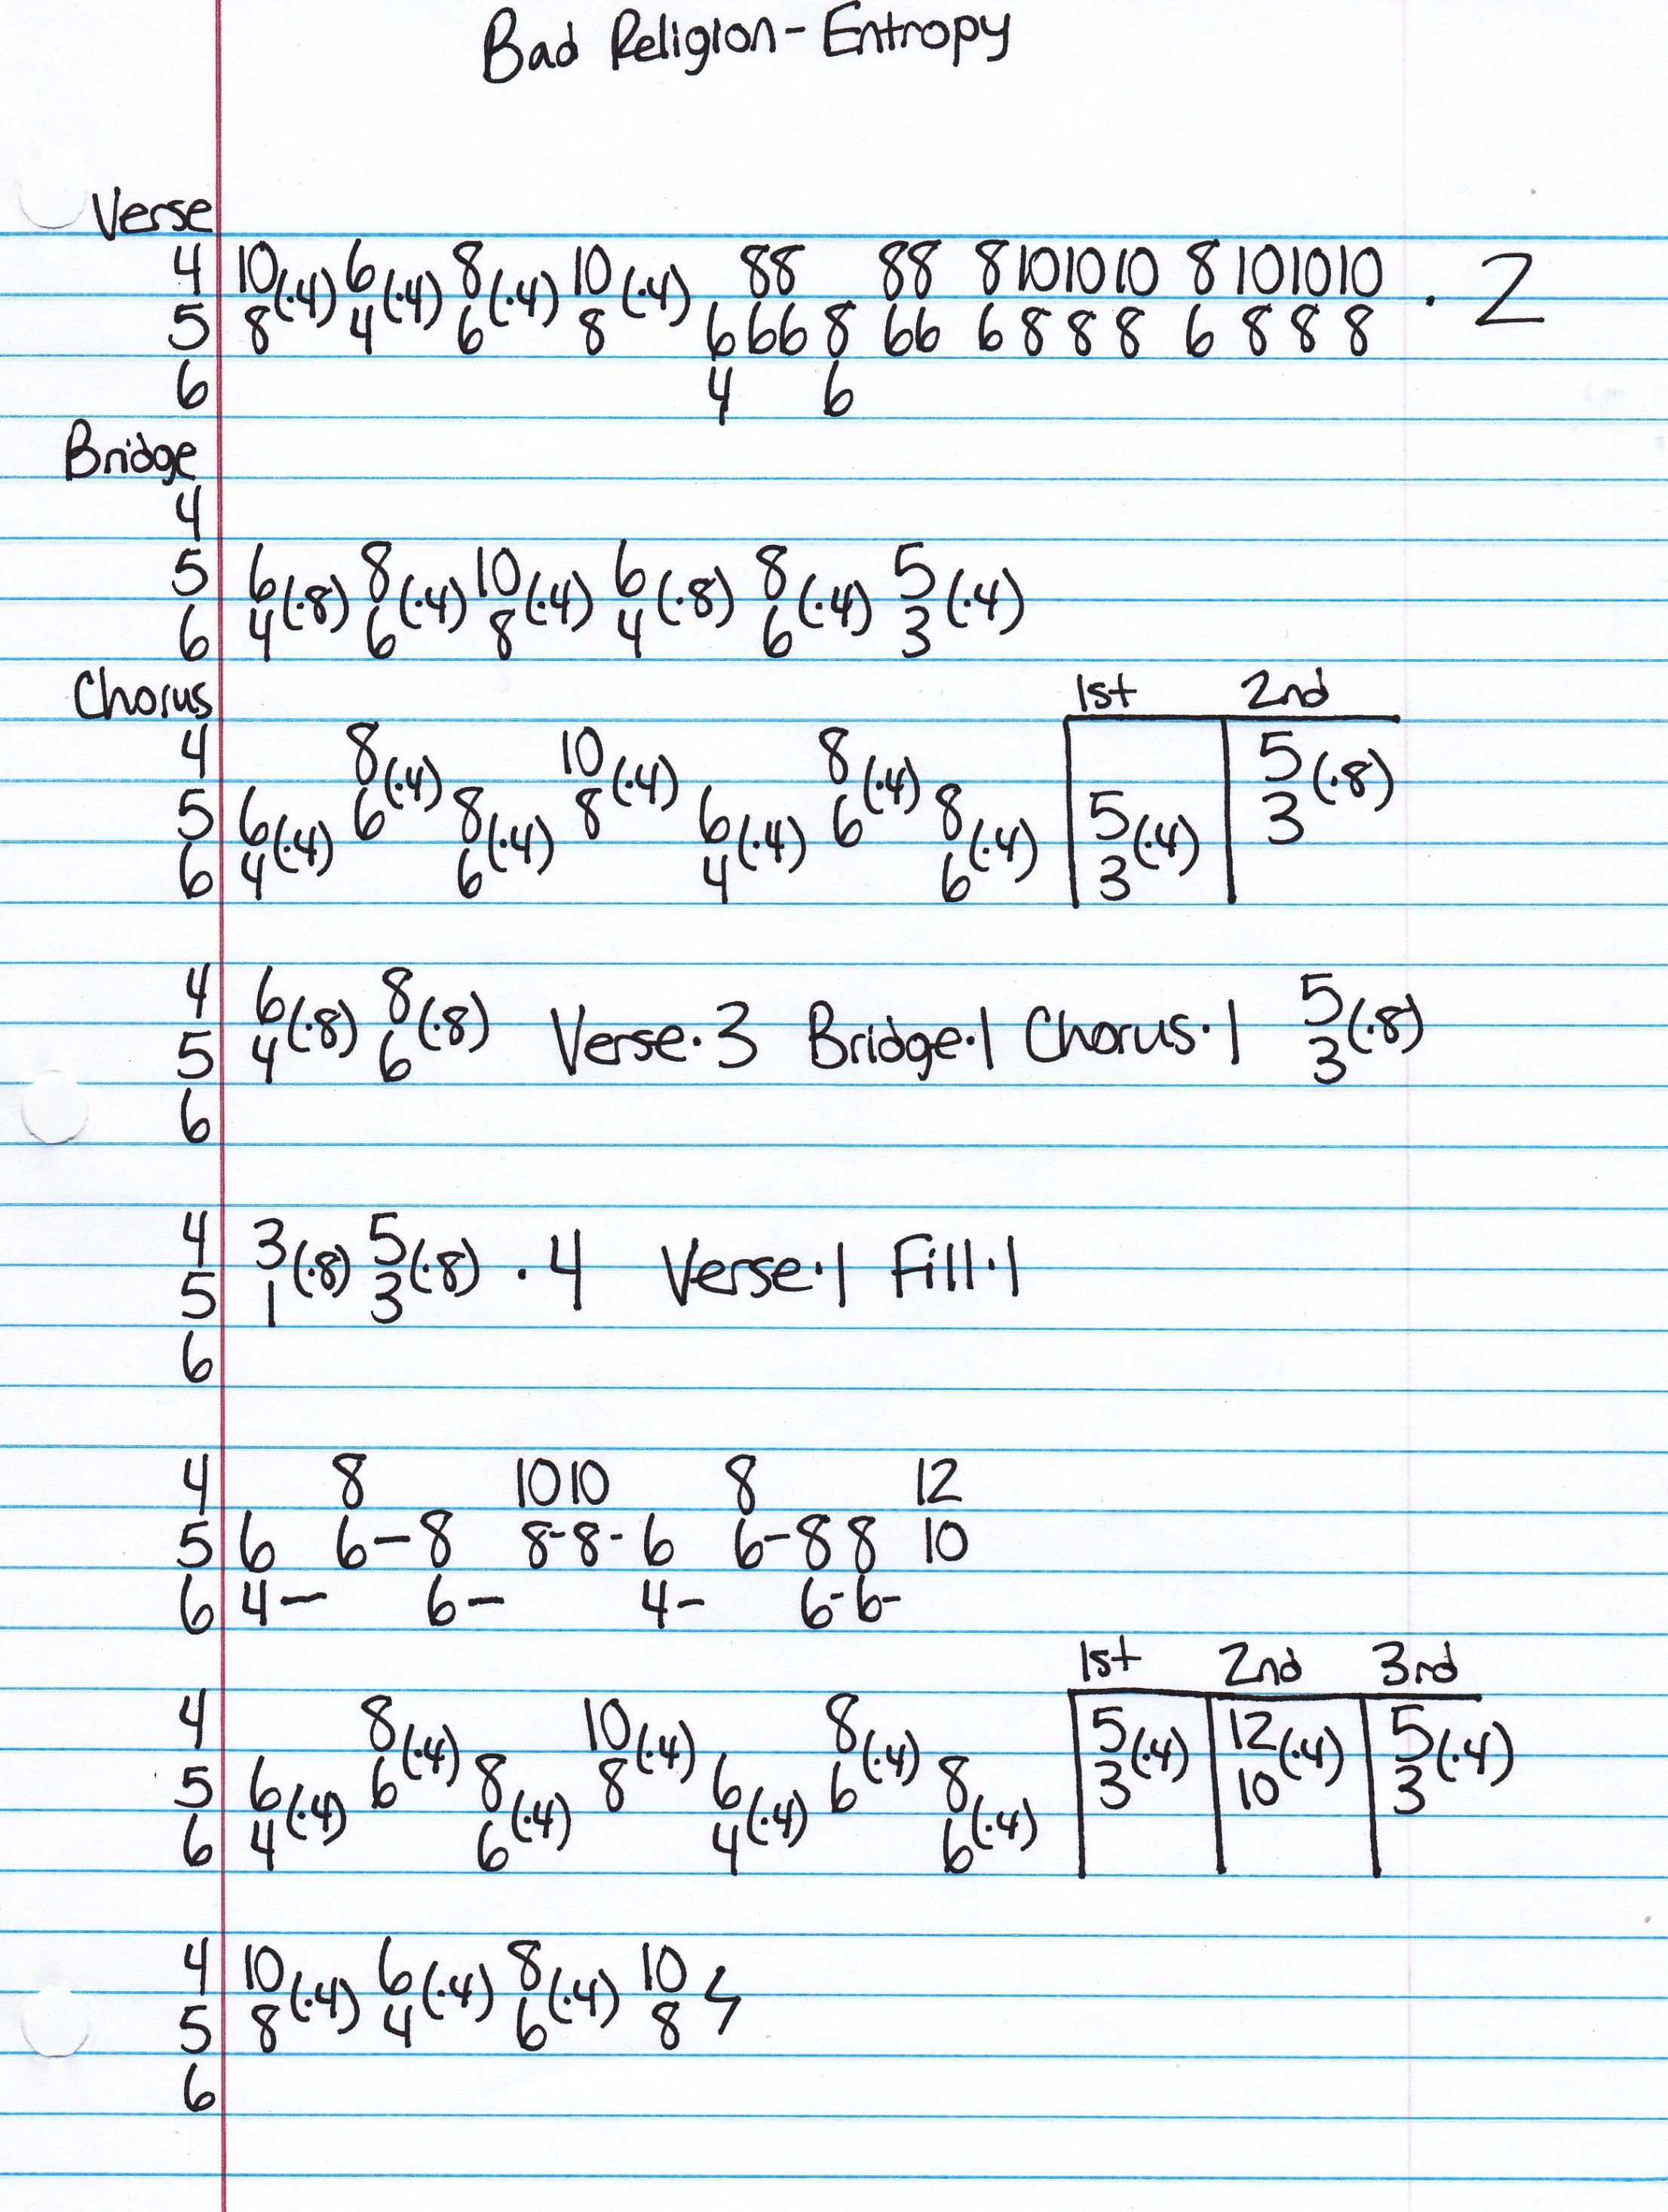 Bad Religion - Entropy
Verse
4 10(·4) 6(·4) 8(·4) 10(·4) 88 88 8 10 10 10 8 10 10 10 · 2
5 8 4 6 8 6 66 8 66 6 8 8 8 6 8 8 8
6 4 6
Bridge
4
5 6(·8) 8(·4) 10(·4) 6(·8) 8(·4) 5(·4)
6 4 6 8 4 6 3
Chorus 1st 2nd
4 8(·4) 10(·4) 8(·4) 5(·8)
5 6(·4) 6 8(·4) 8 6(·4) 6 8(·4) 5(·4) 3
6 4 6 4 6 3
4 6(·8) 8(·8) Verse·3 Bridge·1 Chorus·1 5(·8)
5 4 6 3
6
4 3(·8) 5(·8) · 4 Verse·1 Fill·1
5 1 3
6
4 8 10 10 8 12
5 6 6 - 8 8 - 8 - 6 6 - 8 8 10
6 4 - 6 - 4 - 6 - 6 -
1st 2nd 3rd
4 8(·4) 10(·4) 8(·4) 5(·4) 12(·4) 5(·4)
5 6(·4) 6 8(·4) 8 6(·4) 6 8(·4) 3 10 3
6 4 6 4 6
4 10(·4) 6(·4) 8(·4) 10
5 8 4 6 8
6